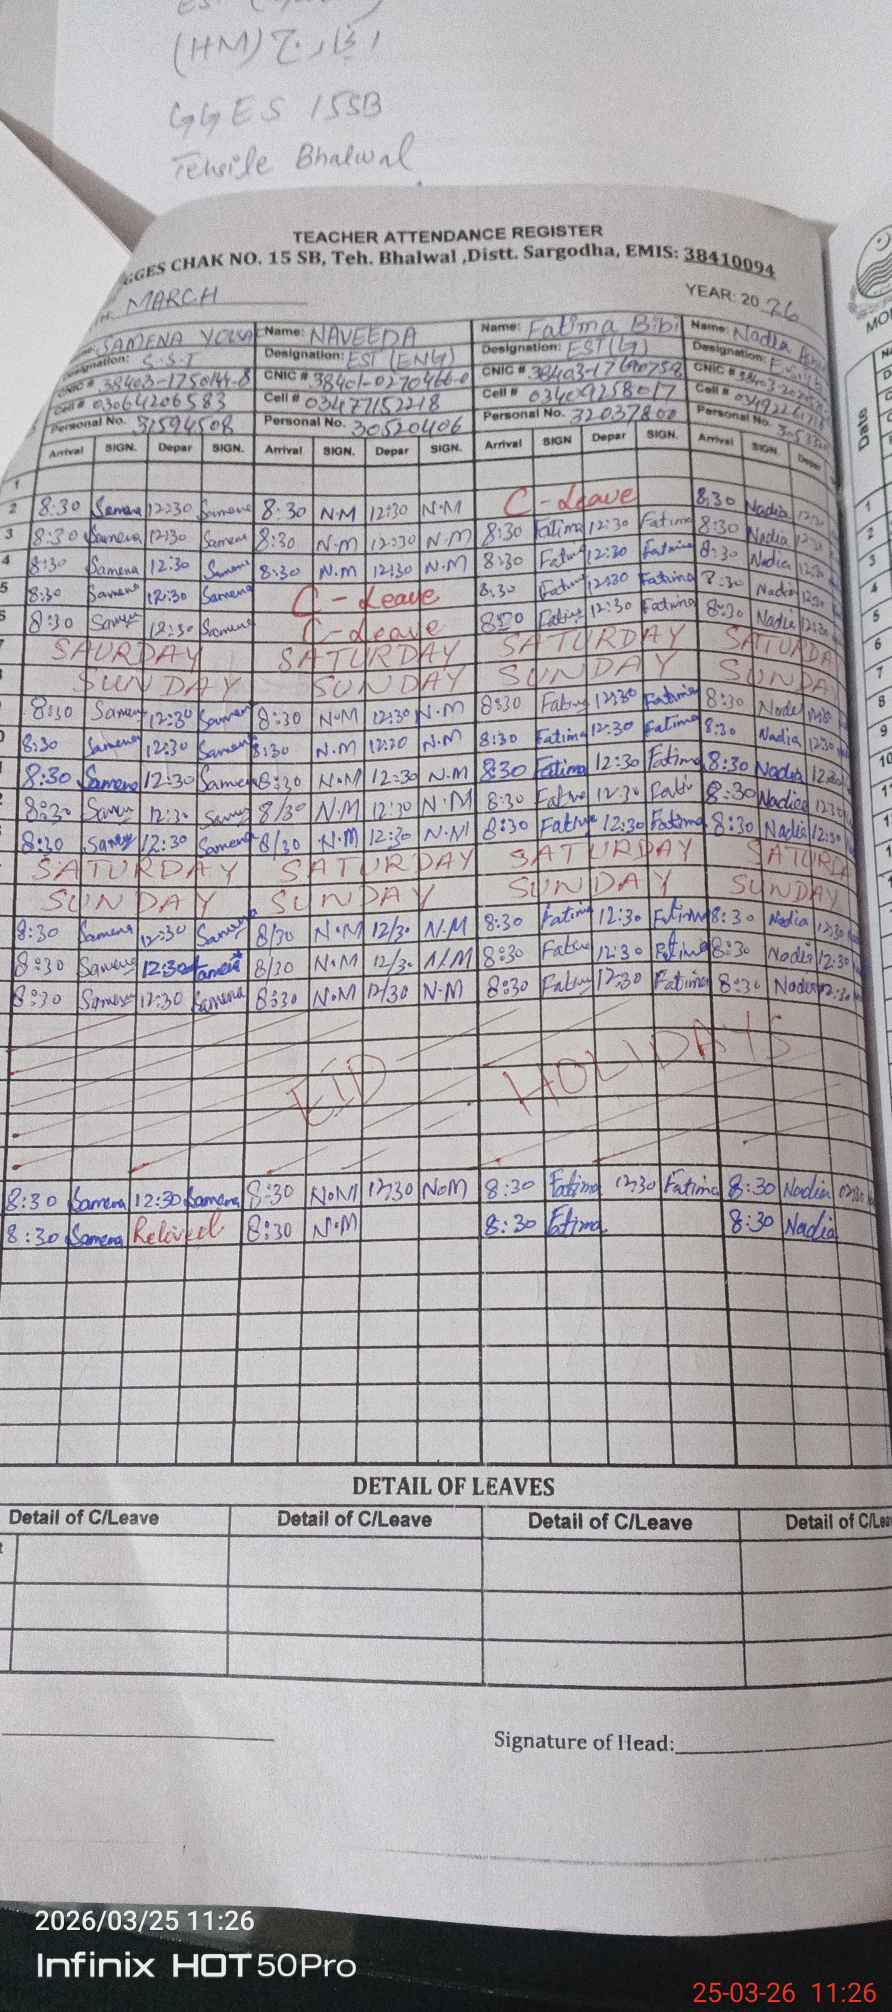 (HM) انچارج
GGES 15SB
Tehsile Bhalwal
TEACHER ATTENDANCE REGISTER
GGES CHAK NO. 15 SB, Teh. Bhalwal ,Distt. Sargodha, EMIS: 38410094
MARCH YEAR: 2026
SAMENA Name: NAVEEDA Name: Fatima Bibi Name: Nadia
Designation: S.S.T Designation: EST (ENG) Designation: EST(G) Designation:
CNIC # 38403-1750144-8 CNIC # 38401-0270466-0 CNIC # CNIC #
Cell # 03064206583 Cell # 03477152218 Cell # 03409258017 Cell #
Personal No. 31594508 Personal No. 30520406 Personal No. 32037800 Personal No.
Arrival SIGN. Depar SIGN. Arrival SIGN. Depar SIGN. Arrival SIGN Depar SIGN. Arrival SIGN. Depar
1
2 8:30 Samena 12:30 Samena 8:30 N.M 12:30 N.M C-Leave 8:30 Nadia 12:30
3 8:30 Samena 12:30 Samena 8:30 N.M 12:30 N.M 8:30 Fatima 12:30 Fatima 8:30 Nadia 12:30
4 8:30 Samena 12:30 Samena 8:30 N.M 12:30 N.M 8:30 Fatima 12:30 Fatima 8:30 Nadia 12:30
5 8:30 Samena 12:30 Samena C-Leave 8:30 Fatima 12:30 Fatima 8:30 Nadia 12:30
8:30 Samena 12:30 Samena C-Leave 8:30 Fatima 12:30 Fatima 8:30 Nadia 12:30
SAURDAY SATURDAY SATURDAY SATURDA
SUNDAY SUNDAY SUNDAY SUNDA
8:30 Samena 12:30 Samena 8:30 N.M 12:30 N.M 8:30 Fatima 12:30 Fatima 8:30 Nadia
8:30 Samena 12:30 Samena 8:30 N.M 12:30 N.M 8:30 Fatima 12:30 Fatima 8:30 Nadia 12:30
8:30 Samena 12:30 Samena 8:30 N.M 12:30 N.M 8:30 Fatima 12:30 Fatima 8:30 Nadia 12:30
8:30 Samena 12:30 Samena 8/30 N.M 12:30 N.M 8:30 Fatima 12:30 Fatima 8:30 Nadia 12:30
8:30 Samena 12:30 Samena 8/30 N.M 12:30 N.M 8:30 Fatima 12:30 Fatima 8:30 Nadia 12:30
SATURDAY SATURDAY SATURDAY SATURDA
SUNDAY SUNDAY SUNDAY SUNDAY
8:30 Samena 12:30 Samena 8/30 N.M 12/30 N.M 8:30 Fatima 12:30 Fatima 8:30 Nadia 12:30
8:30 Samena 12:30 Samena 8/30 N.M 12/30 N.M 8:30 Fatima 12:30 Fatima 8:30 Nadia 12:30
8:30 Samena 12:30 Samena 8:30 N.M 12/30 N.M 8:30 Fatima 12:30 Fatima 8:30 Nadia 12:30
EID HOLIDAYS
8:30 Samena 12:30 Samena 8:30 N.M 12:30 N.M 8:30 Fatima 12:30 Fatima 8:30 Nadia 12:30
8:30 Samena Relived 8:30 N.M 8:30 Fatima 8:30 Nadia
DETAIL OF LEAVES
Detail of C/Leave Detail of C/Leave Detail of C/Leave Detail of C/Lea
Signature of Head:
Date
1
2
3
4
5
6
7
8
9
10
2026/03/25 11:26
Infinix HOT 50Pro
25-03-26 11:26